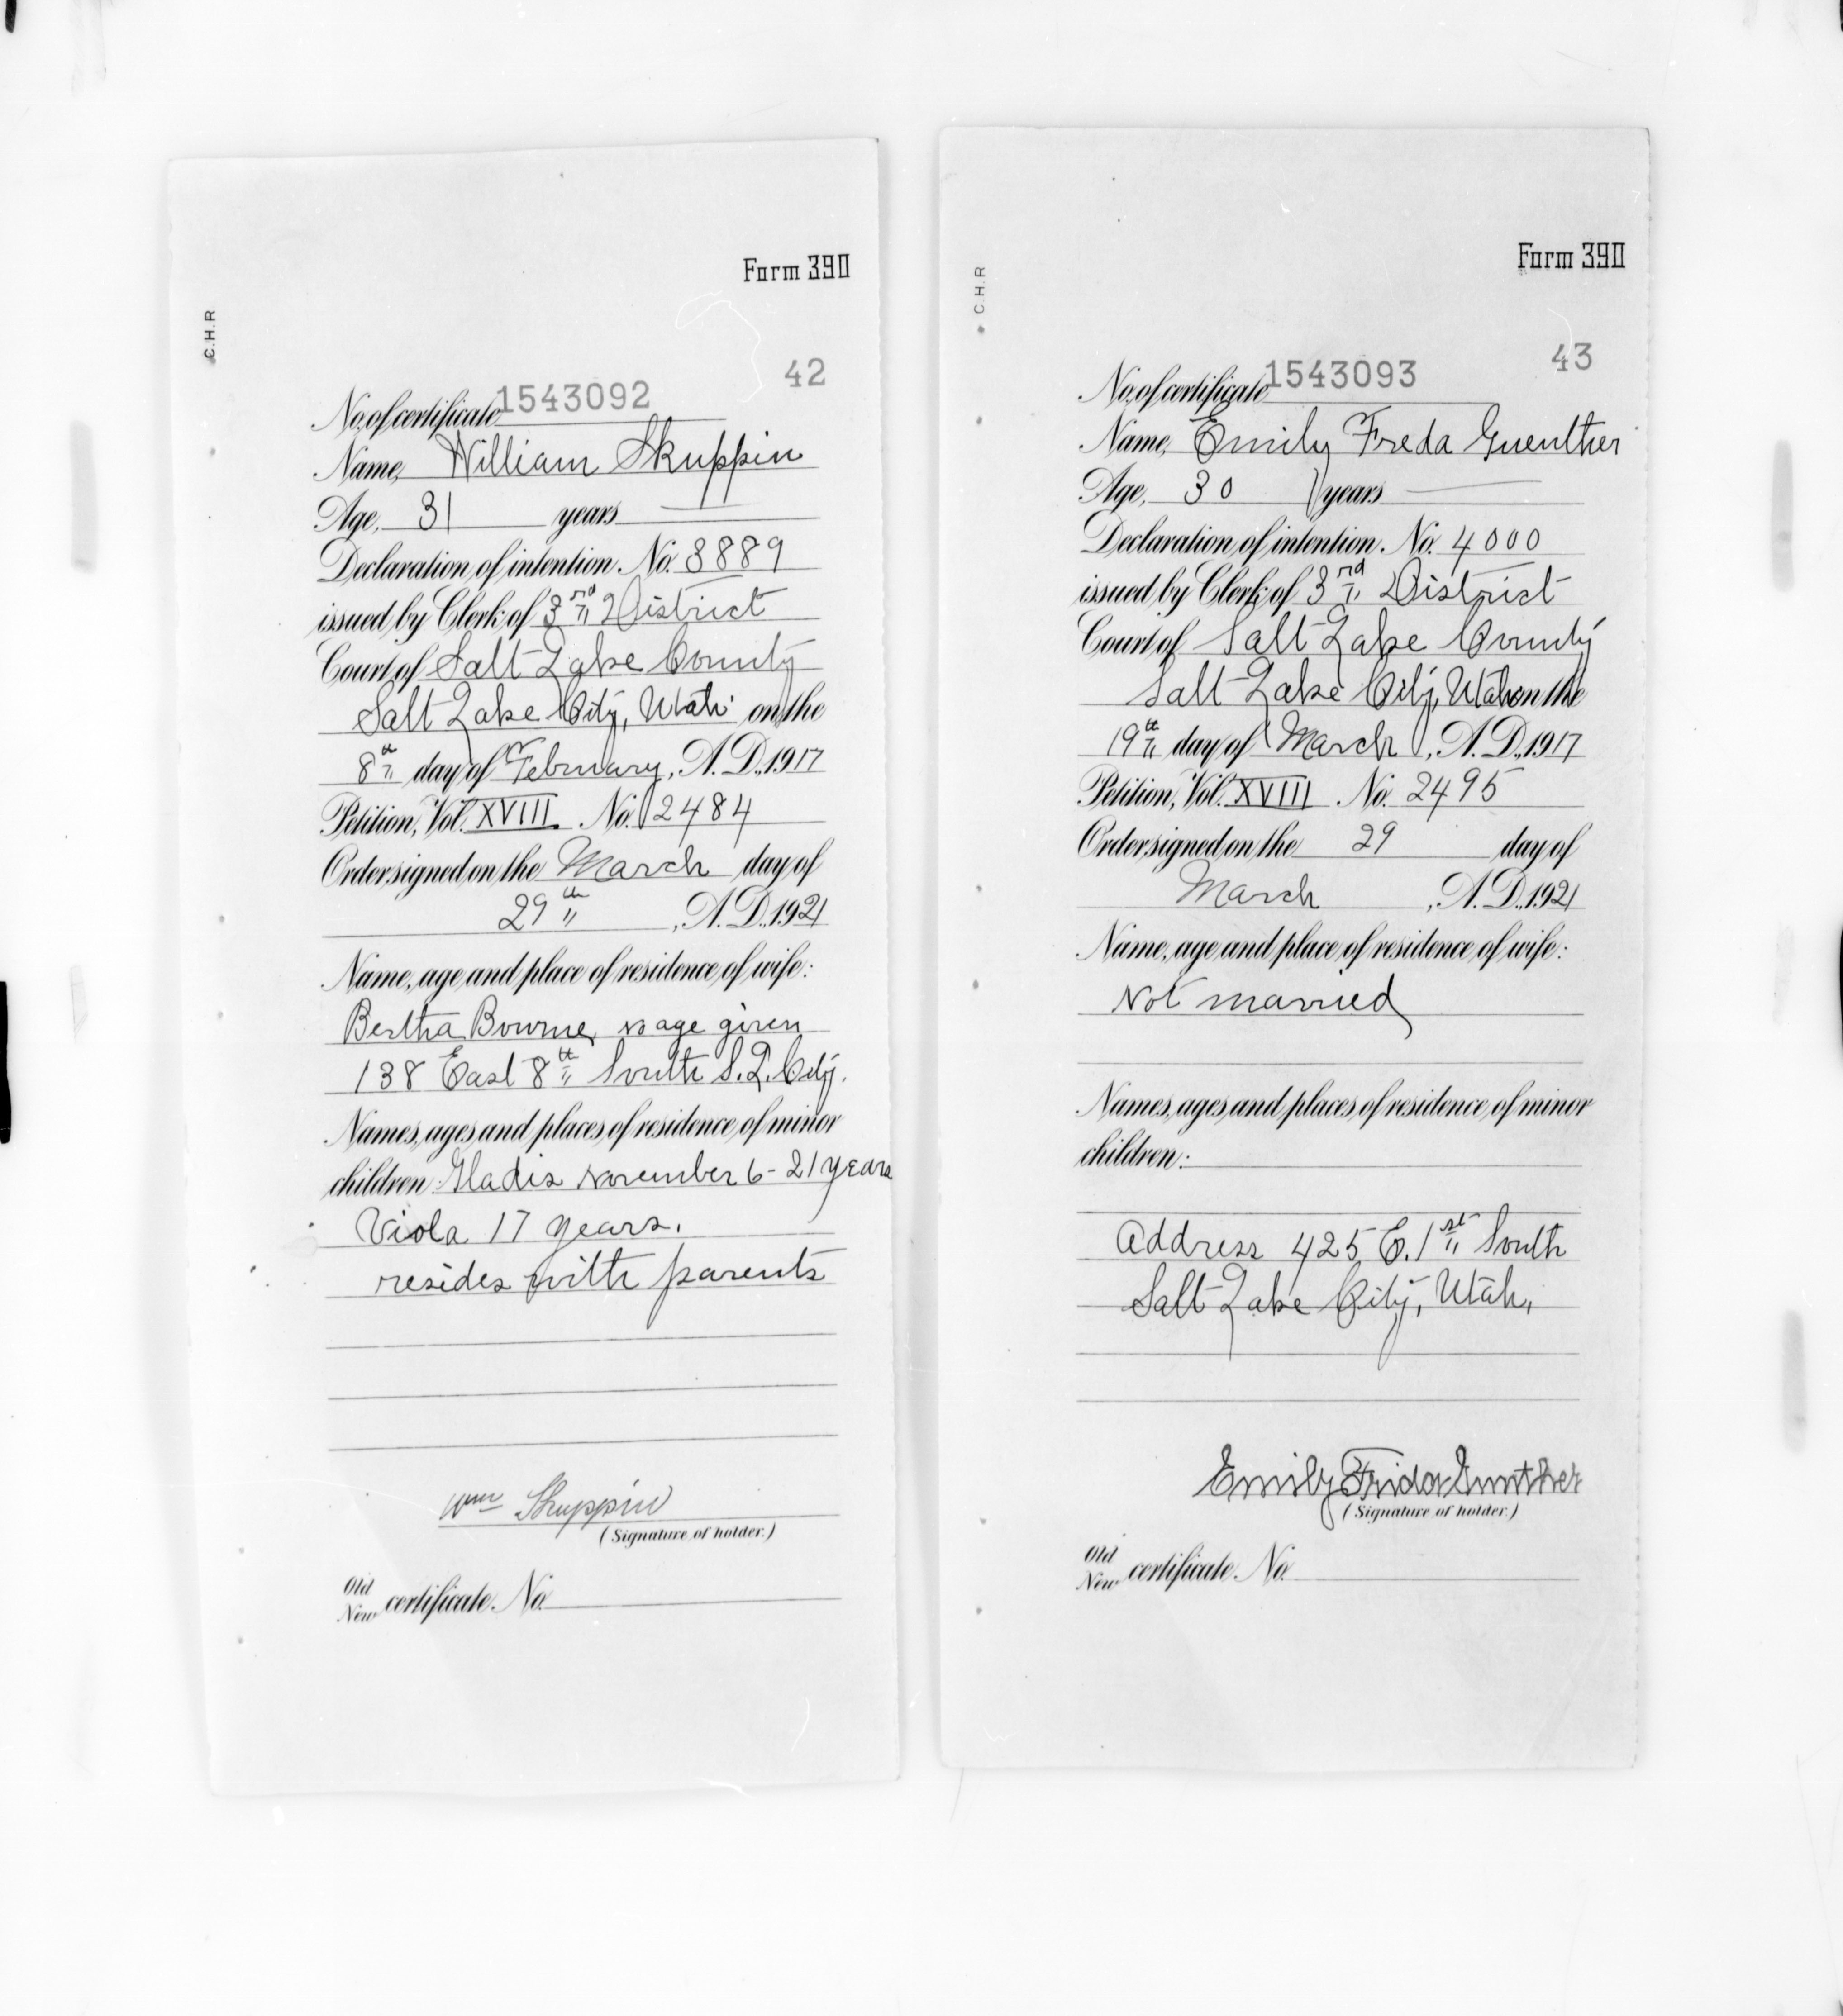 Form 390
C.H.R
42
No. of certificate 1543092
Name, William Skuppin
Age, 31 years
Declaration of intention No. 3889
issued by Clerk of 3rd District
Court of Salt Lake County
Salt Lake City, Utah on the
8th day of February, A. D., 1917
Petition, Vol. XVIII No. 2484
Order signed on the March day of
29th , A. D., 1921
Name, age and place of residence of wife:
Bertha Bourne, no age given
138 East 8th South S. L. City.
Names, ages and places of residence of minor
children: Gladis November 6 - 21 years
Viola 17 years.
resides with parents
Wm Skuppin
(Signature of holder.)
Old
New certificate No.
Form 390
C.H.R
43
No. of certificate 1543093
Name, Emily Freda Guenther
Age, 30 years
Declaration of intention No. 4000
issued by Clerk of 3rd District
Court of Salt Lake County
Salt Lake City, Utah on the
19th day of March, A. D., 1917
Petition, Vol. XVIII No. 2495
Order signed on the 29 day of
March , A. D., 1921
Name, age and place of residence of wife:
Not married
Names, ages and places of residence of minor
children:
Address 425 E. 1st South
Salt Lake City, Utah.
Emily Frida Gunther
(Signature of holder.)
Old
New certificate No.